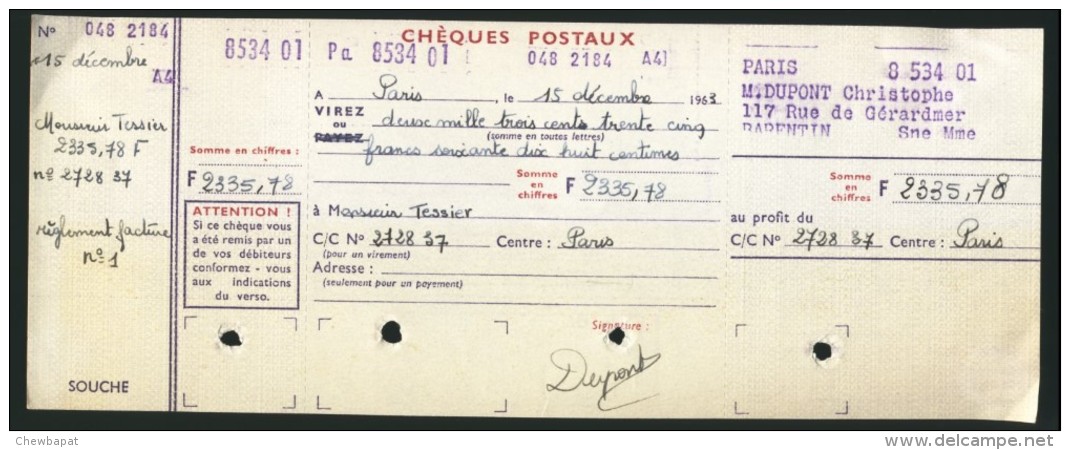 No 048 2184
15 décembre
A4
Monsieur Tessier
2335,78 F
no 2728 37
règlement facture
no 1
SOUCHE
8534 01
Somme en chiffres :
F 2335,78
ATTENTION !
Si ce chèque vous
a été remis par un
de vos débiteurs
conformez - vous
aux indications
du verso.
CHÈQUES POSTAUX
Pa 8534 01 048 2184 A4
A Paris , le 15 décembre 1963
VIREZ
ou
PAYEZ
deux mille trois cents trente cinq
(somme en toutes lettres)
francs soixante dix huit centimes
Somme
en
chiffres
F 2335,78
à Monsieur Tessier
C/C No 2728 37 Centre : Paris
(pour un virement)
Adresse :
(seulement pour un payement)
Signature :
Dupont
PARIS 8 534 01
M.DUPONT Christophe
117 Rue de Gérardmer
BARENTIN Sne Mme
Somme
en
chiffres
F 2335,78
au profit du
C/C No 2728 37 Centre : Paris
Chewbapat
www.delcampe.net